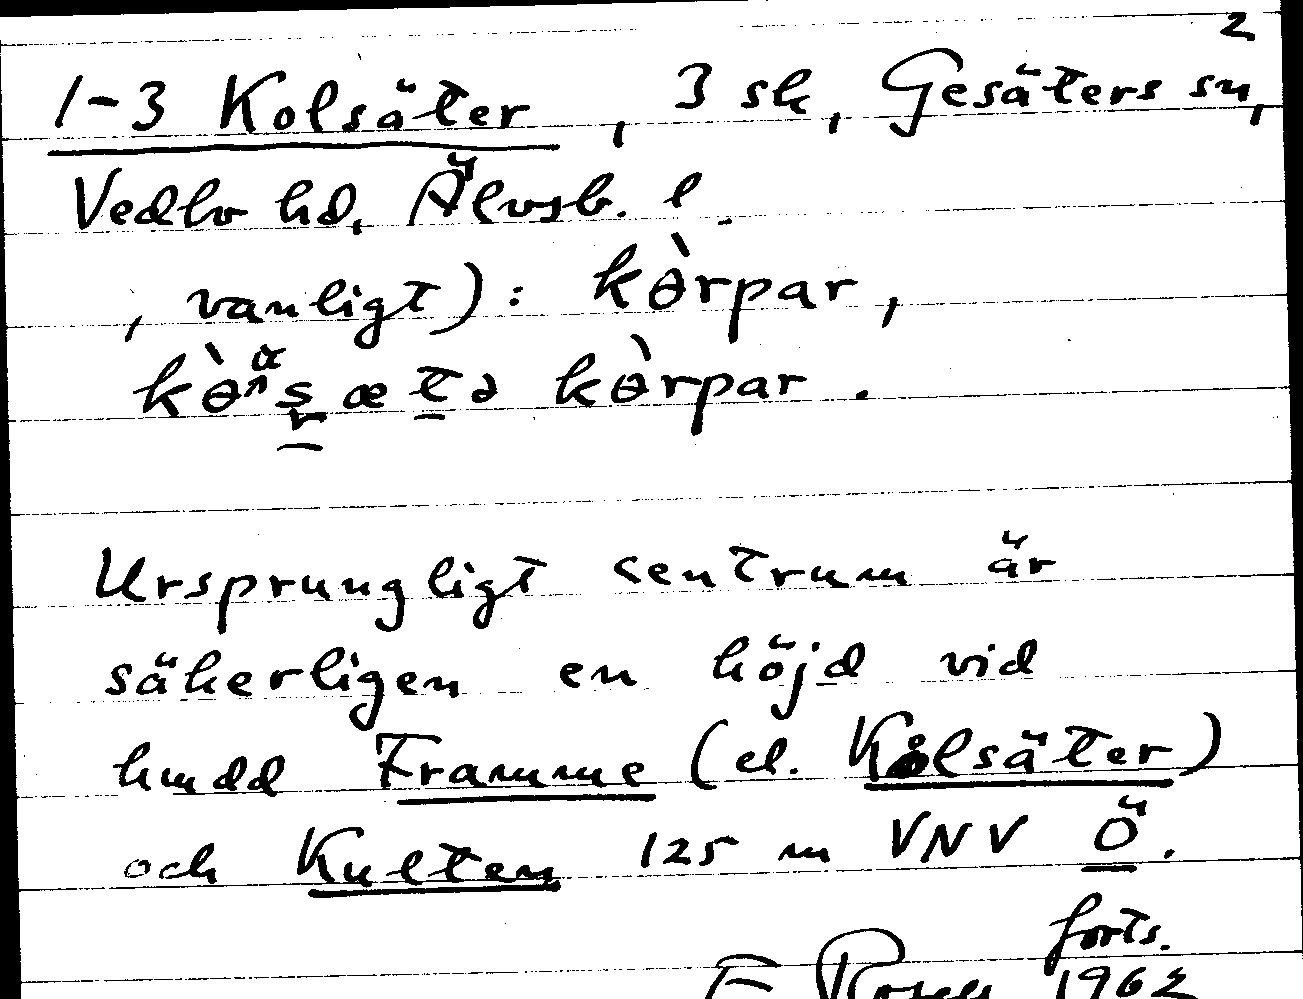 2
1-3 Kolsäter, 3 sk, Gesäters sn,
Vedbo hd, Älvsb. l.
, vanligt): kɵ̀rpar,
kɵ̀ʌṣætə kɵ̀rpar.
Ursprungligt centrum är
säkerligen en höjd vid
hmdd Framme (el. Kålsäter)
och Kulten 125 m VNV Ö.
forts.
E Rosell 1962